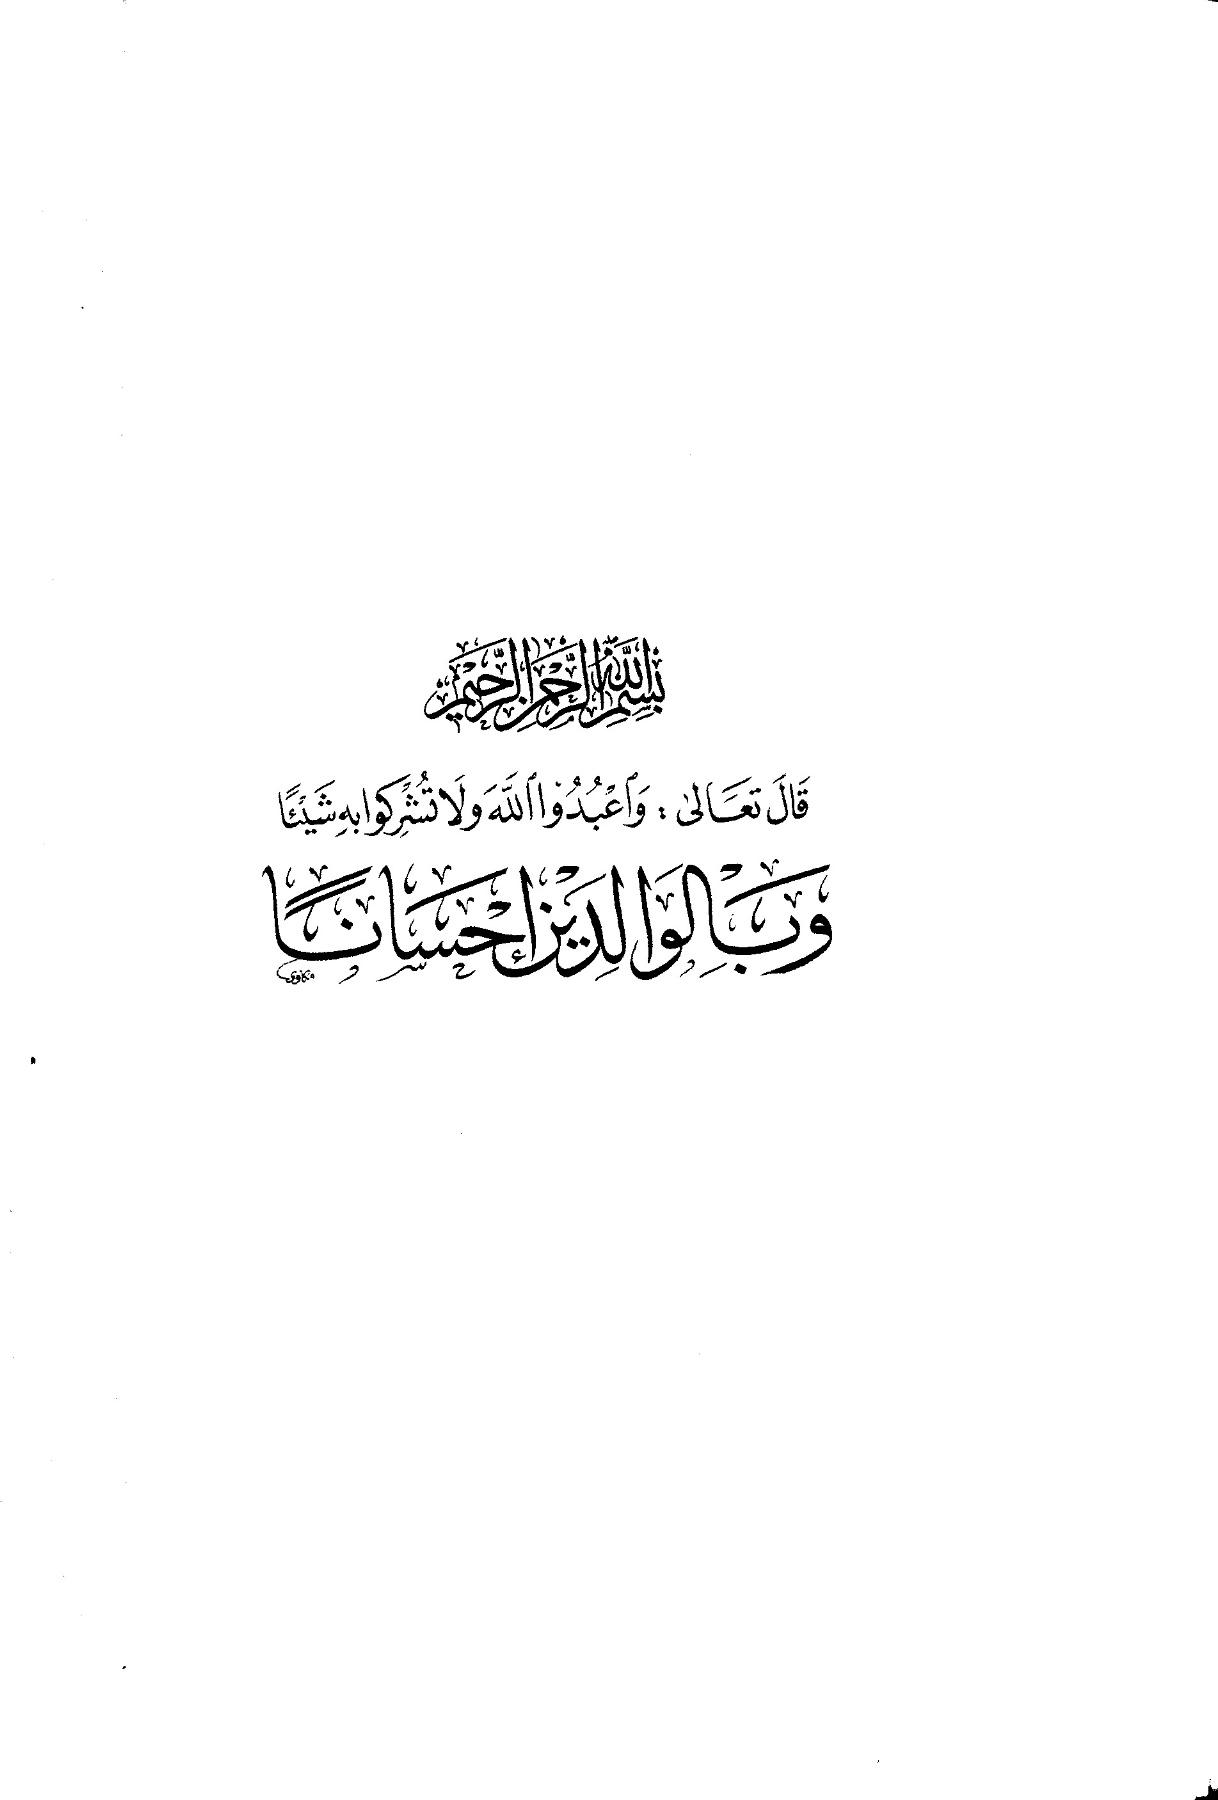 بِسْمِ اللَّهِ الرَّحْمَٰنِ الرَّحِيمِ
قَالَ تَعَالَىٰ : وَٱعْبُدُوا۟ ٱللَّهَ وَلَا تُشْرِكُوا بِهِ شَيْئًا
وَبِالْوَالِدَيْنِ إِحْسَانًا